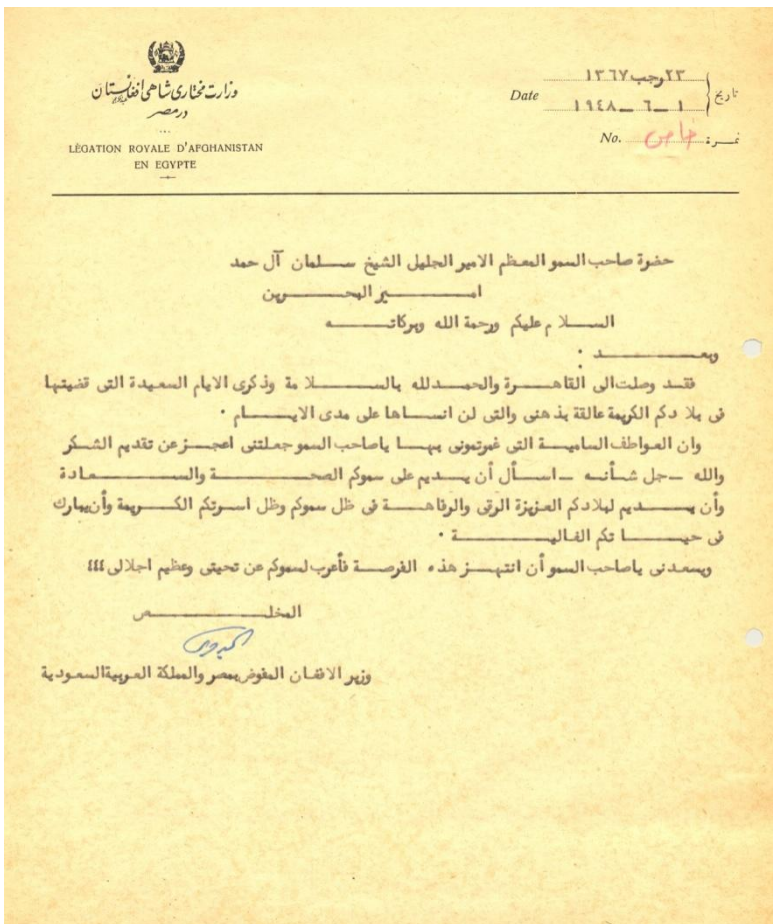 وزارت مختاری شاهی افغانستان
در مصر
LÉGATION ROYALE D'AFGHANISTAN
EN EGYPTE
Date
تاریخ
٢٣ رجب ١٣٦٧
١ – ٦ – ١٩٤٨
No. خاص نمرة :
حضرة صاحب السمو المعظم الامير الجليل الشيخ سـلمان آل حمد
اميـر البحـرين
السـلام عليكم ورحمة الله وبركاتـه
وبعـد ٠
فقـد وصلت الى القاهـرة والحمـد لله بالسـلامة وذكرى الايام السعيدة التى قضيتها
فى بلادكم الكريمة عالقة بذهنى والتى لن انسـاها على مدى الايـام ٠
وان العـواطف الساميـة التى غمرتمونى بهـا ياصاحب السمو جعلتنى اعجـز عن تقديم الشـكر
والله – جل شـأنـه – اسـأل أن يـديم على سموكم الصحـة والسـعادة
وأن يـديم لبلادكم العـزيزة الرقى والرفاهـة فى ظل سموكم وظل اسـرتكم الكـريمة وأن يبارك
فى حيـاتكم الغاليـة ٠
ويسعـدنى ياصاحب السمو أن انتهـز هذه الفرصـة فأعرب لسموكم عن تحيتى وعظيم اجلالى ،،،
المخلـص
وزير الافغـان المفوض بمصر والمملكة العـربية السعـودية